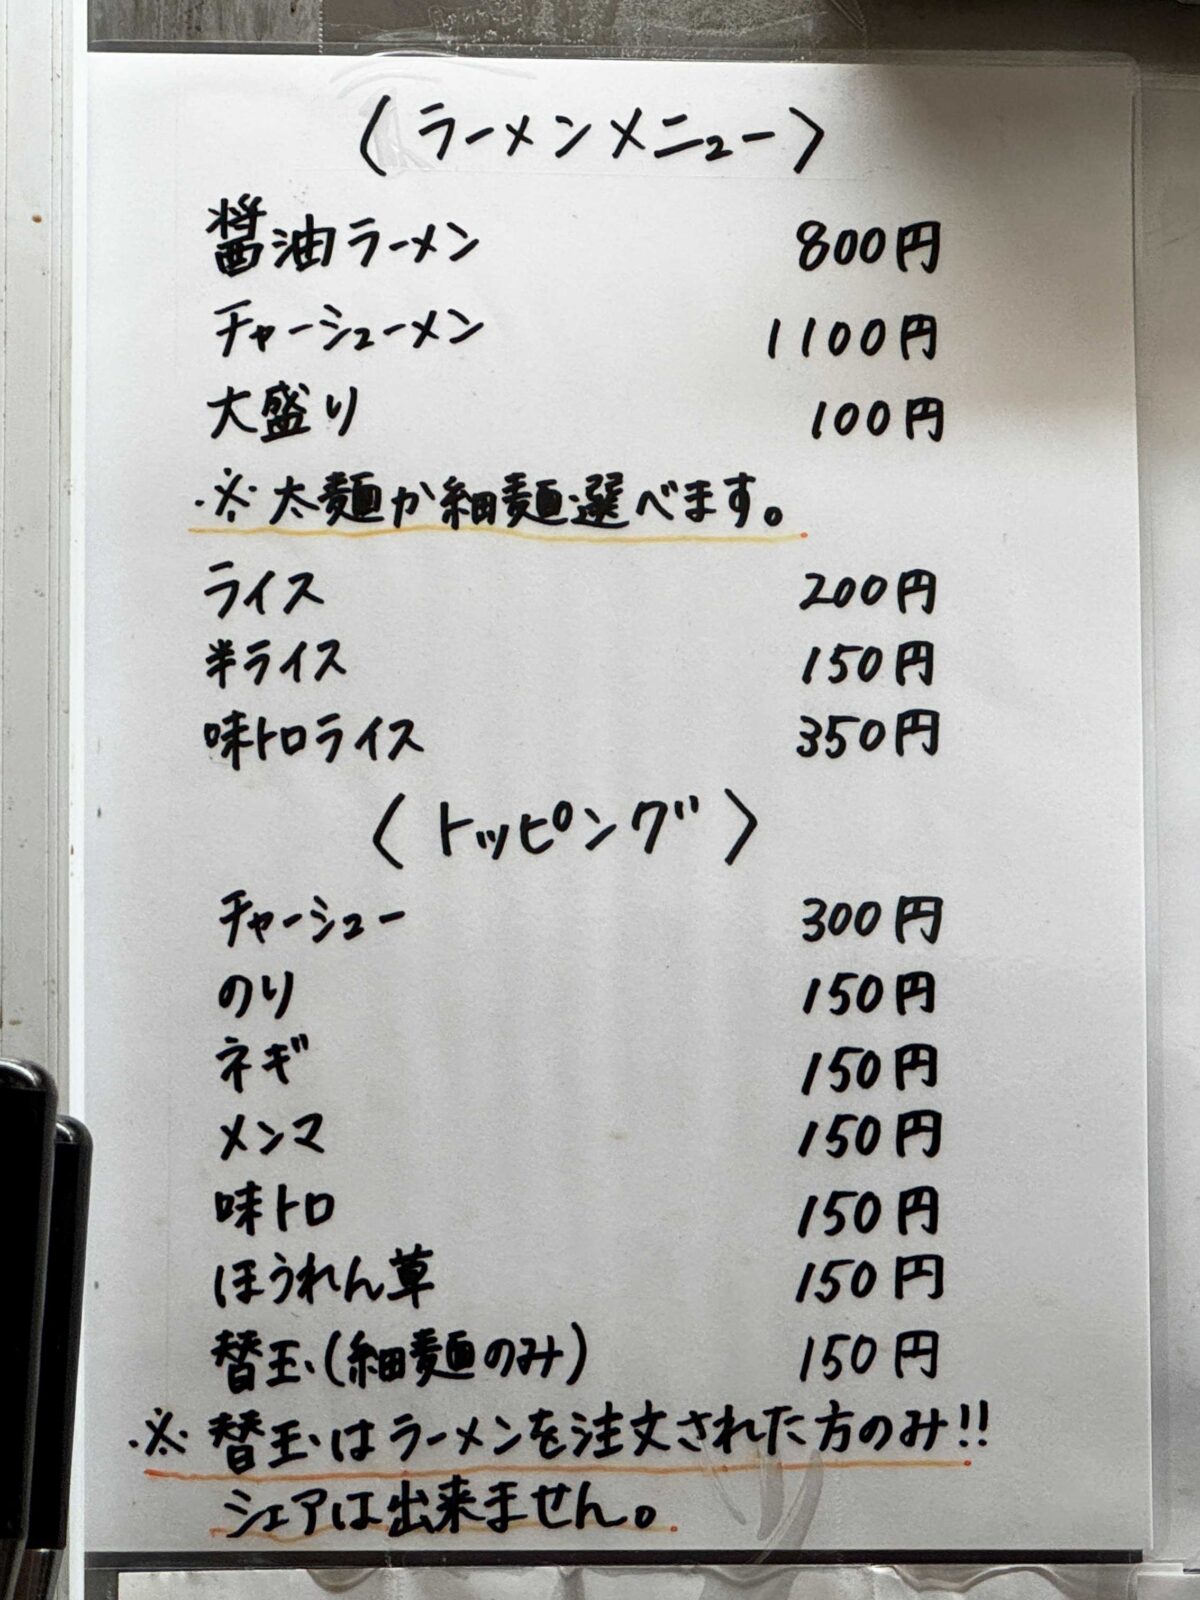 〈ラーメンメニュー〉
醤油ラーメン 800円
チャーシューメン 1100円
大盛り 100円
※太麺か細麺選べます。
ライス 200円
半ライス 150円
味トロライス 350円
〈トッピング〉
チャーシュー 300円
のり 150円
ネギ 150円
メンマ 150円
味トロ 150円
ほうれん草 150円
替玉(細麺のみ) 150円
※替玉はラーメンを注文された方のみ!!
シェアは出来ません。